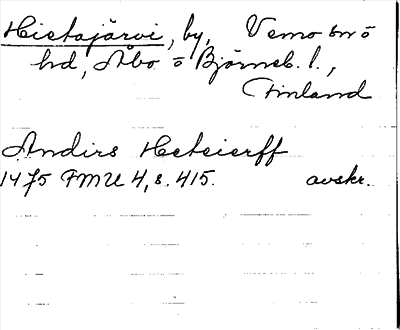 Hietajärvi, by, Vemo sn ö
hd, Åbo ö Björneb. l.,
Finland
Andirs Heteierff
1475 FMU 4, s. 415. avskr.